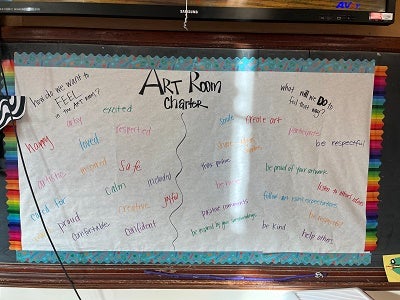 ART Room
Charter
How do we want to
FEEL
in the ART Room?
excited
artsy
respected
happy
loved
safe
artistic
inspired
calm
included
cared for
creative
joyful
proud
comfortable
confident
what will we DO to
feel this way?
smile
create art
participate
be respectful
share
true praise
be proud of your artwork
be nice
listen to what
positive comments
follow art room expectations
be respectful
be inspired by your surroundings
be kind
help others